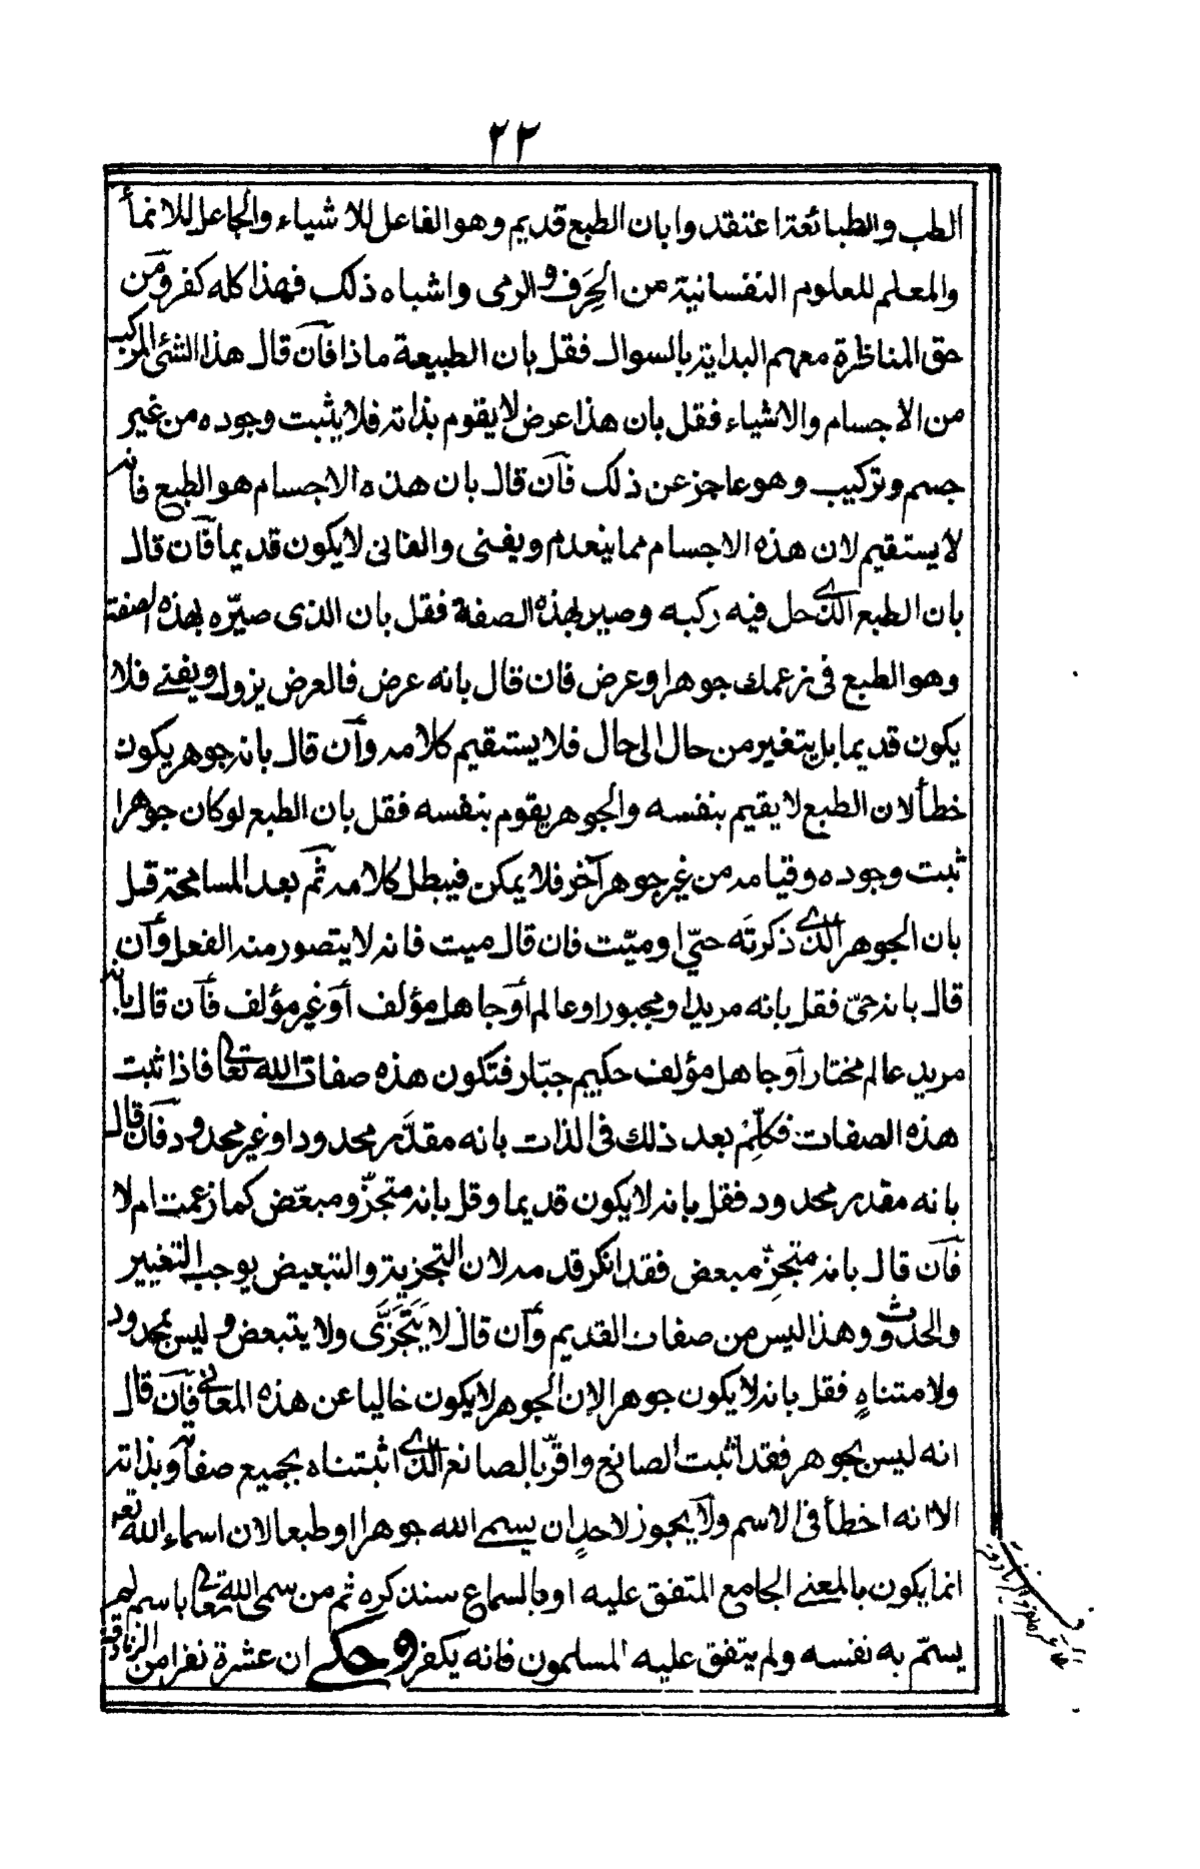 ٢٢
الطب والطبائعة اعتقدوا بان الطبع قديم وهو الفاعل للاشياء والجاعل للانمأ
والمعلم للعلوم النفسانية من الحِرَف والرمى واشباه ذلك فهذا كله كفر ومن
حق المناظرة معهم البداية بالسوال فقل بان الطبيعة ماذا فآن قال هذا الشئ المركب
من الاجسام والاشياء فقل بان هذا عرض لا يقوم بذاته فلا يثبت وجوده من غير
جسم وتركيب وهو عاجز عن ذلك فآن قال بان هذه الاجسام هو الطبع فانه
لا يستقيم لان هذه الاجسام مما ينعدم ويفنى والفانى لا يكون قديما فآن قال
بان الطبع الذى حل فيه ركبه وصير بهذه الصفة فقل بان الذى صيّره بهذه الصفة
وهو الطبع فى زعمك جوهر او عرض فان قال بانه عرض فالعرض يزول ويفنے فلا
يكون قديما بل يتغير من حال الى حال فلا يستقيم كلامه وآن قال بانه جوهر يكون
خطأ لان الطبع لا يقيم بنفسه والجوهر يقوم بنفسه فقل بان الطبع لو كان جوهرا
ثبت وجوده وقيامه من غير جوهر آخر فلا يمكن فيبطل كلامه ثم بعد المسامحة قل
بان الجوهر الذى ذكرته حىّ او ميّت فان قال ميت فانه لا يتصور منه الفعل وآن
قال بانه حىّ فقل بانه مريد او مجبور او عالم أو جاهل مؤلف أو غير مؤلف فآن قال بانه
مريد عالم مختار أو جاهل مؤلف حكيم جبّار فتكون هذه صفات الله تعالى فاذا ثبت
هذه الصفات فكلِّمْ بعد ذلك فى الذات بانه مقدَّر محدود او غير محدود فآن قال
بانه مقدر محدود فقل بانه لا يكون قديما وقل بانه متجزّ ومبعّض كما زعمت ام لا
فآن قال بانه متجزّ مبعض فقد انكر قدمه لان التجزية والتبعيض يوجب التغيير
والحدوث وهذا ليس من صفات القديم وآن قال لا يَتَجَزَّى ولا يتبعض وليس بمحدود
ولا متناهٍ فقل بانه لا يكون جوهرا لان الجوهر لا يكون خاليا عن هذه المعانى فآن قال
انه ليس بجوهر فقد اثبت الصانع واقرّ بالصانع الذى اثبتناه بجميع صفاته وبذاته
الا انه اخطأ فى الاسم ولا يجوز لاحدٍ ان يسمے الله جوهرا او طبعا لان اسماء الله تعـ
انما يكون بالمعنے الجامع المتفق عليه او بالسماع سنذكره ثم من سمى الله تعالى باسم لم
يسمّ به نفسه ولم يتفق عليه المسلمون فانه يكفر وحكے ان عشرة نفرا من الزنادقة